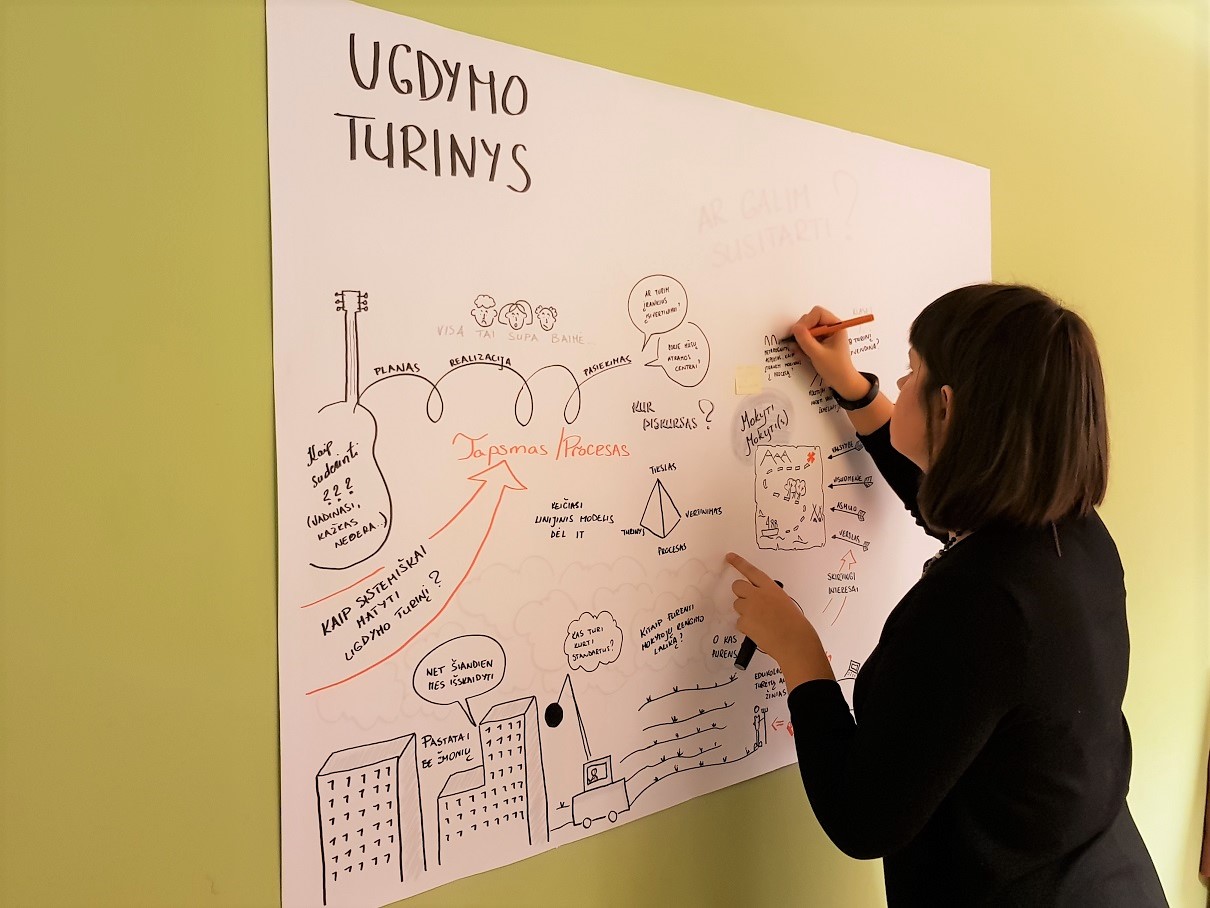 UGDYMO
TURINYS
AR GALIM
SUSITARTI?
VISA TAI SUPA BAIMĖ...
PLANAS
REALIZACIJA
PASIEKIMAS
AR TURIM
ĮRANKIUS
ĮSIVERTINIMUI?
KUR MŪSŲ
ATRAMOS
CENTRAI?
KUR
DISKURSAS?
Kaip
suderinti
???
(VADINASI,
KAŽKAS
NEDERA...)
Tapsmas/Procesas
Mokyti
Mokyti(s)
KEIČIASI
LINIJINIS MODELIS
DĖL IT
TIKSLAS
VERTINIMAS
TURINYS
PROCESAS
VALSTYBĖ
VISUOMENĖ
ASMUO
VERSLAS
SKIRTINGI
INTERESAI
KAIP SISTEMIŠKAI
MATYTI
UGDYMO TURINĮ?
NET ŠIANDIEN
MES IŠSKAIDYTI
PASTATAI
BE ŽMONIŲ
KAS TURI
KURTI
STANDARTUS?
KITAIP PURENTI
MOKYTOJŲ RENGIMO
LAUKĄ?
O KAS
PURENS
ŽINIAS